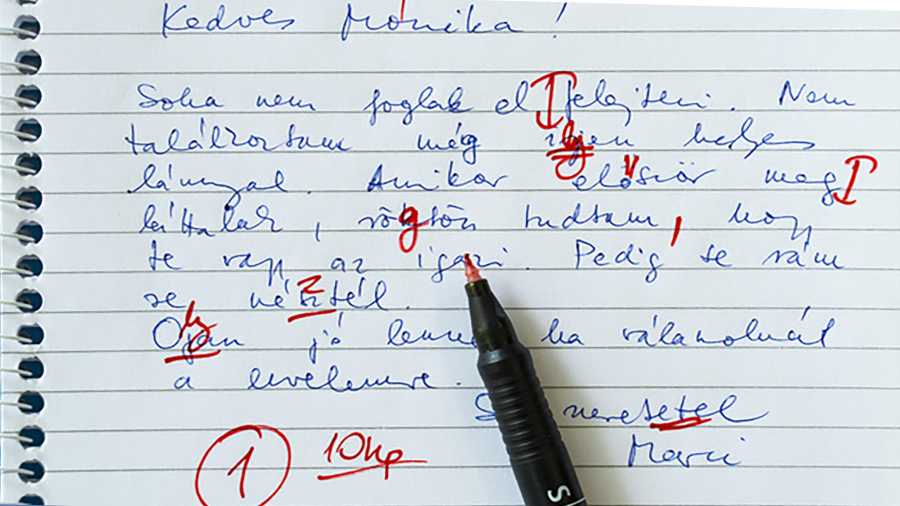 Kedves Mónika!
Soha nem foglak el felejteni. Nem
találkoztam még ilyen helyes
lánnyal. Amikor először meg
láttalak, rögtön tudtam, hogy
te vagy az igazi. Pedig te rám
se néztél.
Olyan jó lenne ha válaszolnál
a levelemre.
szeretetel
Marci
1 10kp
S